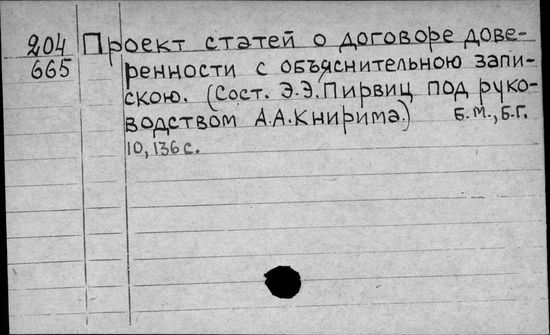 204 Проект статей о договоре дове-
665 ренности с объяснительною запи-
скою. (Сост. Э.Э.Пирвиц под руко-
водством А.А.Книрима.) Б.М., Б.Г.
10, 136 с.